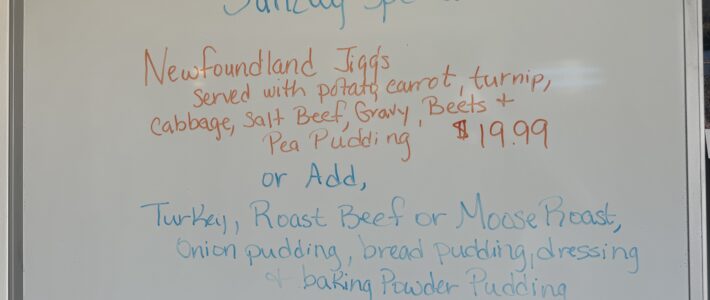 Sunday Spe
Newfoundland Jiggs
Served with potato, carrot, turnip,
Cabbage, Salt Beef, Gravy, Beets +
Pea Pudding $19.99
or Add,
Turkey, Roast Beef or Moose Roast,
Onion pudding, bread pudding, dressing
+ baking Powder Pudding